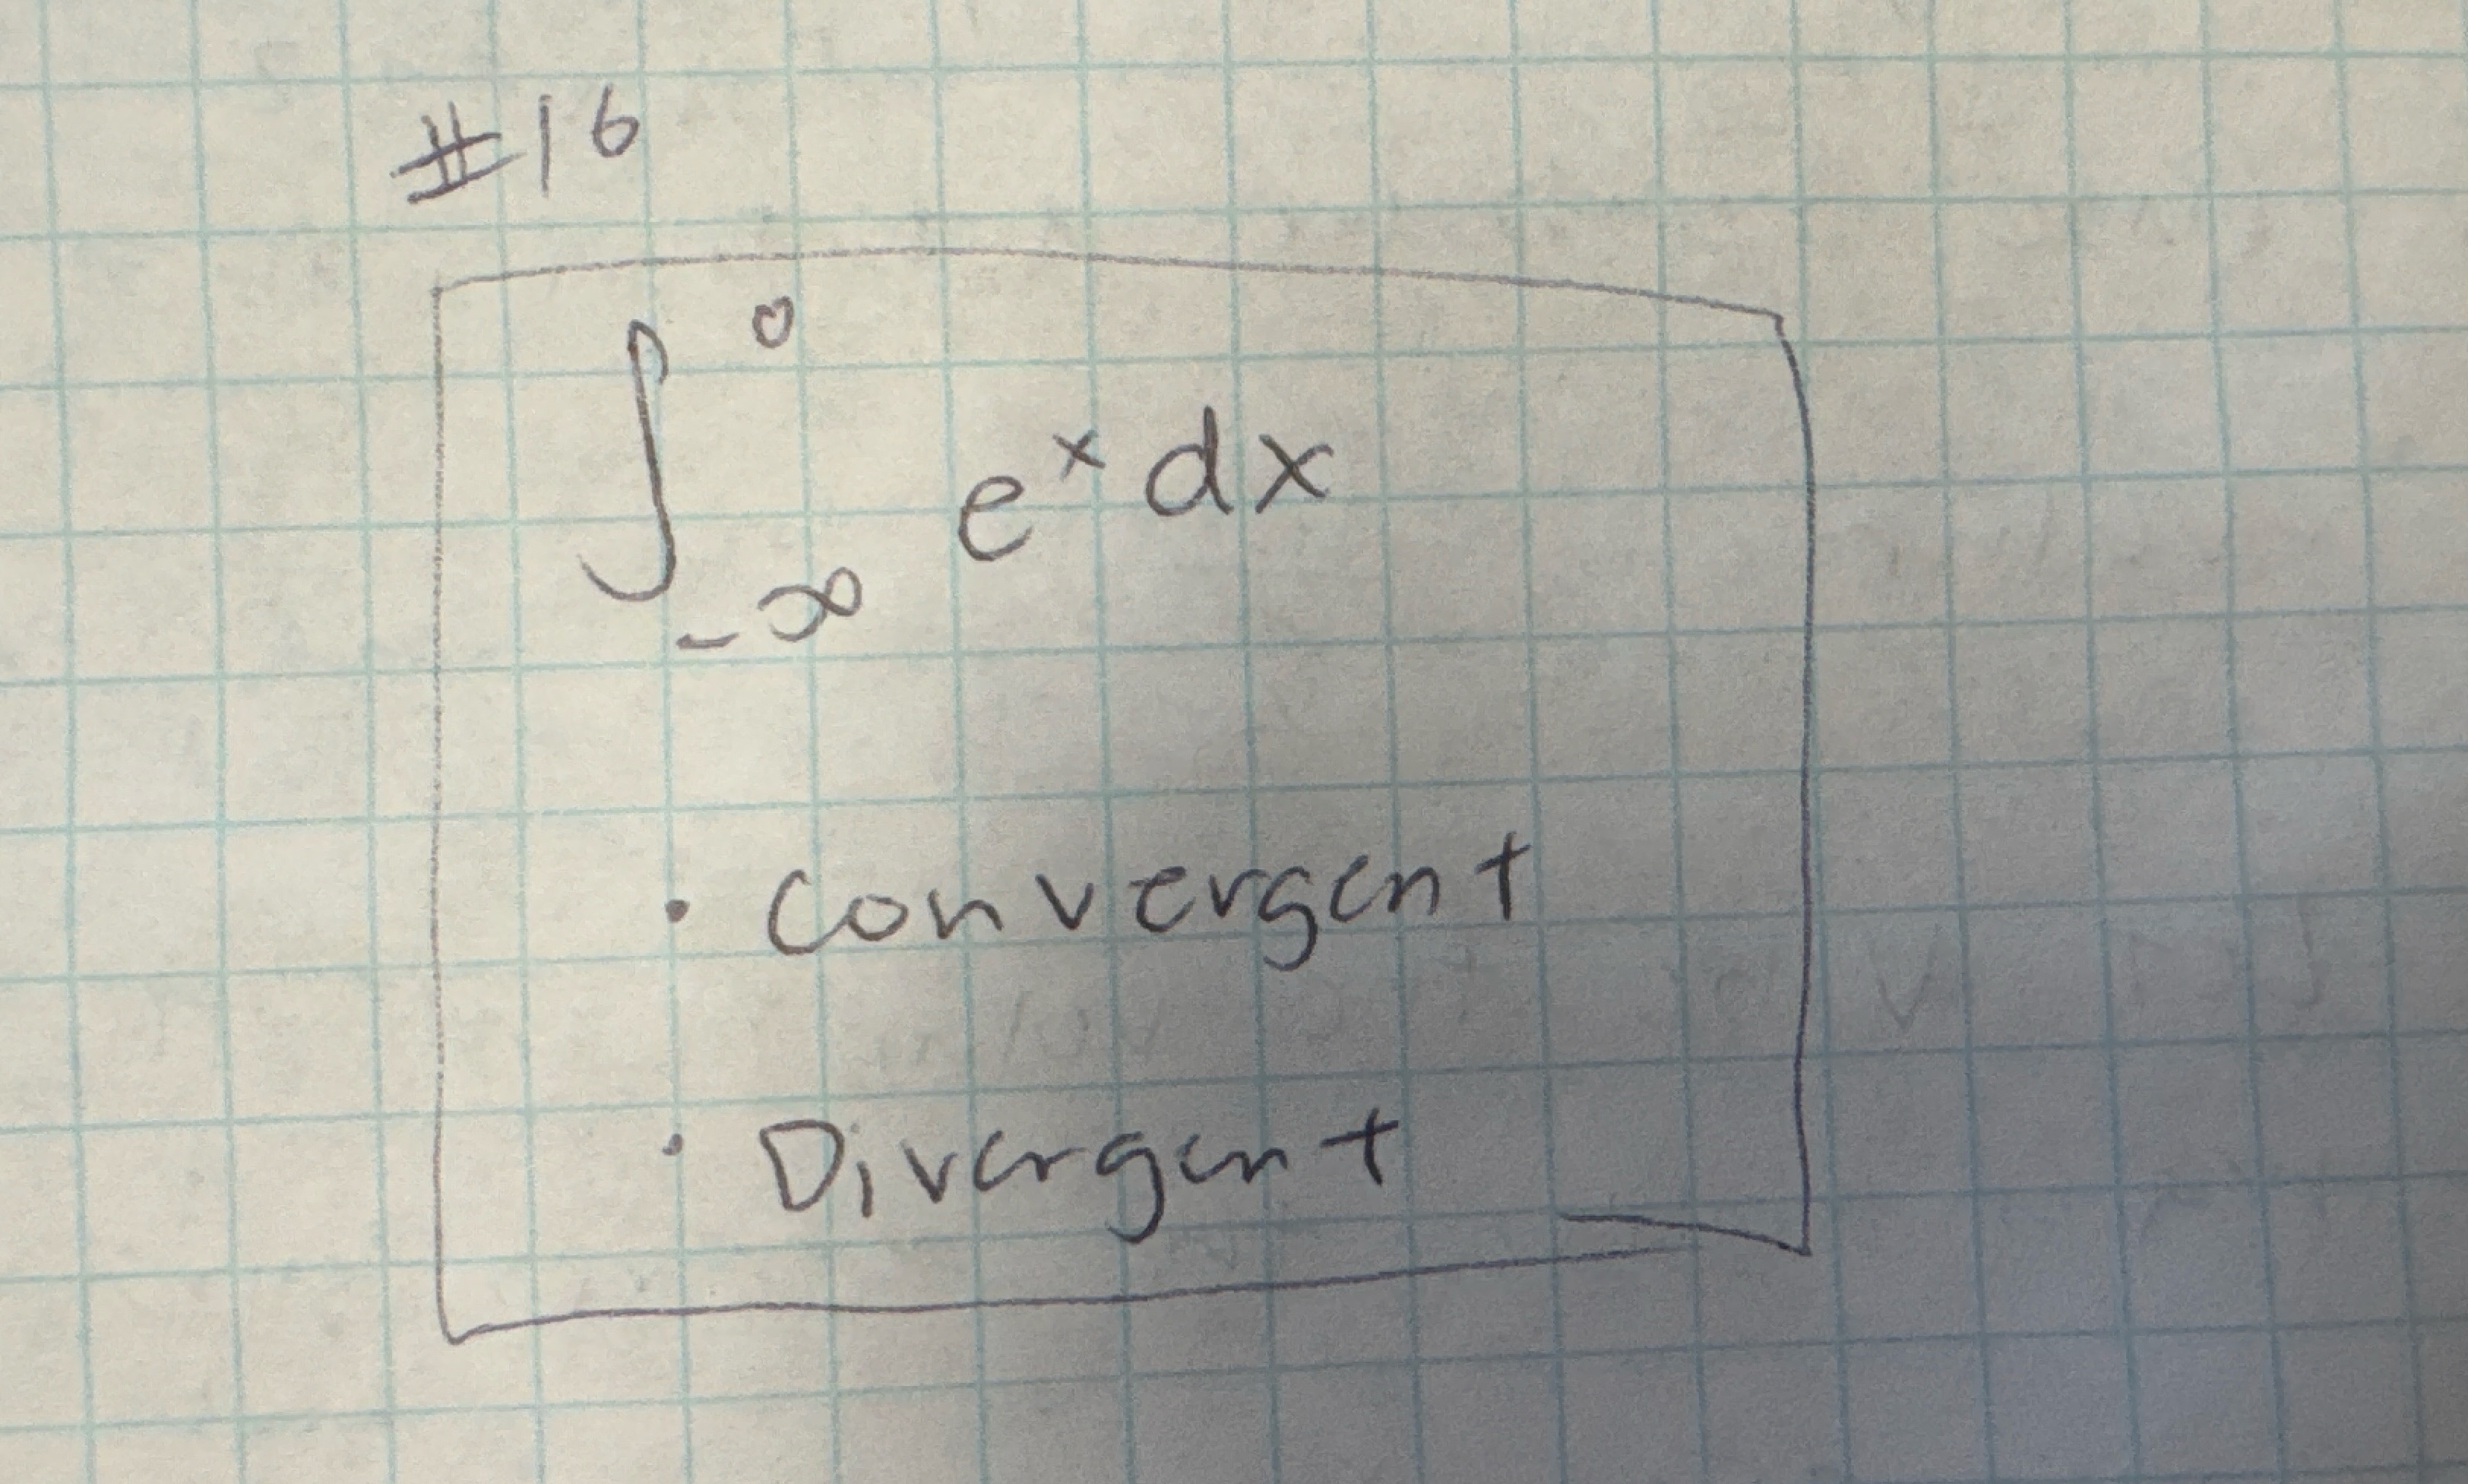 #16
∫_{-∞}^{0} e^x dx
· Convergent
· Divergent